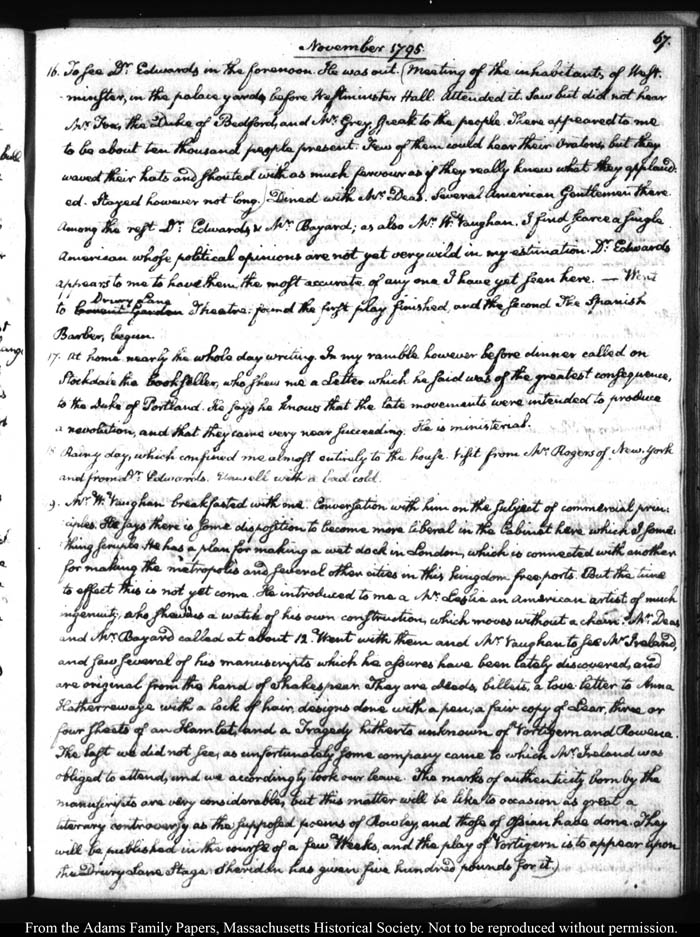 November 1795.
67.
16. To see Dr. Edwards in the forenoon. He was out. (Meeting of the inhabitants, of West-
minster, in the palace yards, before Westminster Hall. Attended it. Saw but did not hear
Mr. Fox, the Duke of Bedford, and Mr. Grey speak to the people. There appeared to me
to be about ten thousand people present. Few of them could hear their Orators, but they
waved their hats and shouted with as much fervour as if they really knew what they applaud-
ed. Stayed however not long.) Dined with Mr. Deas. Several American Gentlemen there.
Among the rest Dr. Edwards & Mr. Bayard; as also Mr. W. Vaughan. I find scarce a single
American whose political opinions are not yet very wild in my estimation. Dr. Edwards
appears to me to have them the most accurate of any one I have yet seen here. — Went
Drury Lane
to Covent Garden Theatre: found the first play finished, and the second The Spanish
Barber, begun.
17. At home nearly the whole day writing. In my ramble however before dinner called on
Stockdale the bookseller, who shew me a Letter which he said was of the greatest consequence,
to the Duke of Portland. He says he knows that the late movements were intended to produce
a revolution, and that they came very near succeeding. He is ministerial.
18 Rainy day, which confined me almost entirely to the house. Visit from Mr. Rogers of New York
and from Dr. Edwards. Unwell with a bad cold.
9. Mr. W. Vaughan breakfasted with me. Conversation with him on the subject of commercial prin-
ciples. He says there is some disposition to become more liberal in the Cabinet here which I some-
thing scruple. He has a plan for making a wet dock in London, which is connected with another
for making the metropolis and several other cities in this kingdom free ports. But the time
to effect this is not yet come. He introduced to me a Mr. Leslie an American artist of much
ingenuity, who shewed us a watch of his own construction, which moves without a chain. Mr. Deas
and Mr. Bayard called at about 12. Went with them and Mr. Vaughan to see Mr. Ireland,
and saw several of his manuscripts which he assures have been lately discovered, and
are original from the hand of Shakespear. They are deeds, billets, a love letter to Anna
Hatherrewaye with a lock of hair, designs done with a pen; a fair copy of Lear, three or
four sheets of an Hamlet, and a Tragedy hitherto unknown of Vortigern and Rowena.
The last we did not see, as unfortunately some company came to which Mr. Ireland was
obliged to attend, and we accordingly took our leave. The marks of authenticity born by the
manuscripts are very considerable, but this matter will be like to occasion as great a
literary controversy as the supposed poems of Rowley, and those of Ossian have done. They
will be published in the course of a few Weeks, and the play of Vortigern is to appear upon
the Drury Lane Stage. Sheridan has given five hundred pounds for it.)
From the Adams Family Papers, Massachusetts Historical Society. Not to be reproduced without permission.